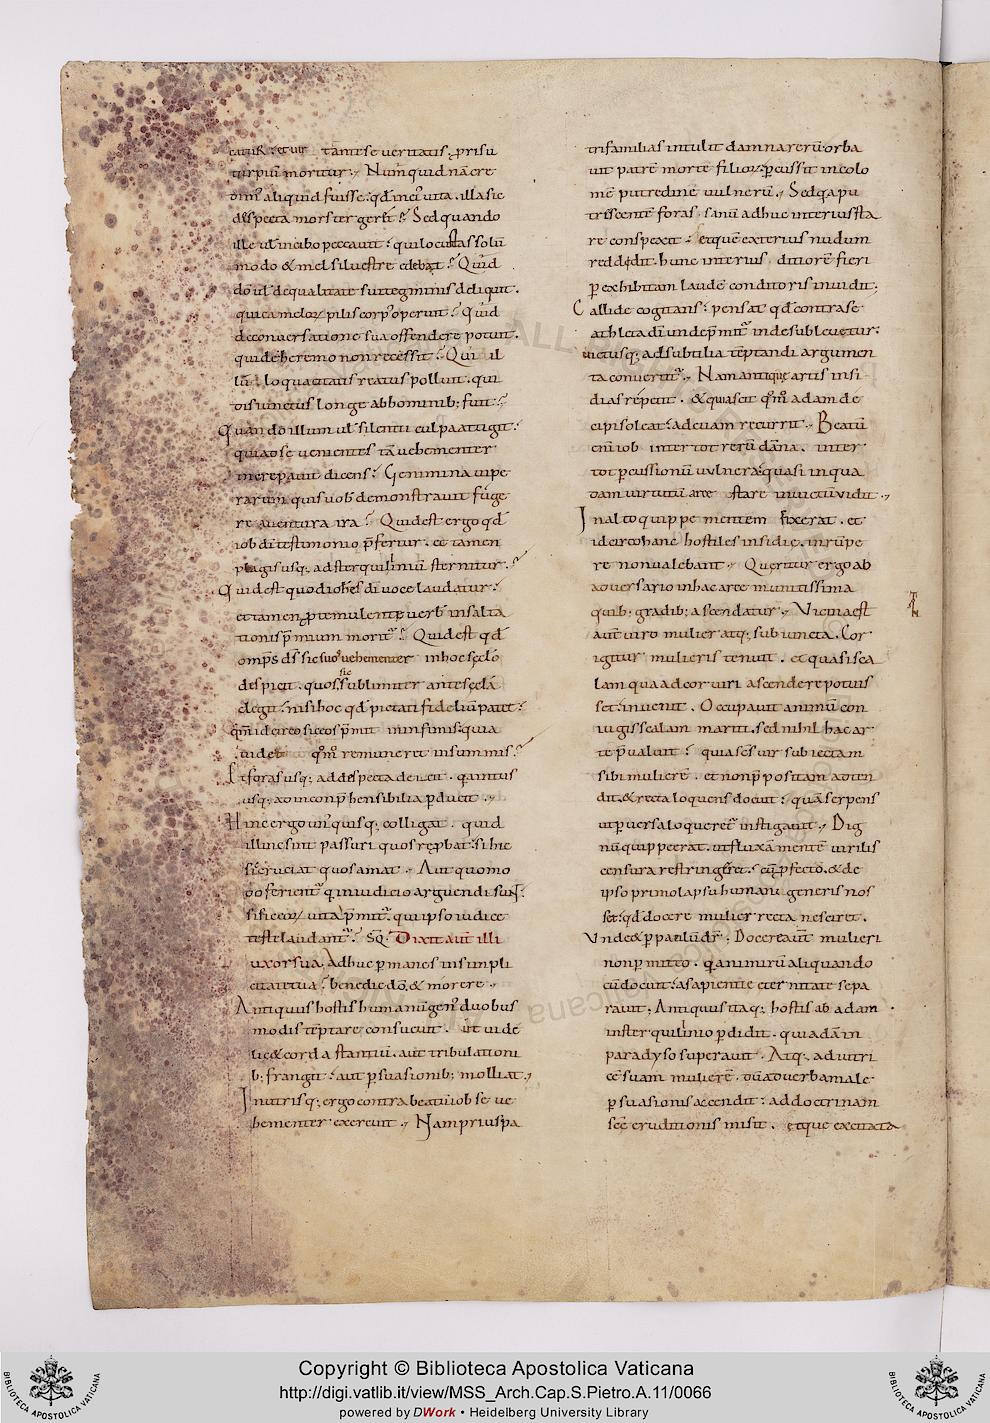 tante se veritatis ꝓ risu
turpiũ moritur. Nunquid nã cre
dim' aliquid fuisse qđ inci' vita. illa sic
despecta mors tergeret? Sed quando
ille ul' in cibo peccavit? qui locustas solũ
modo & mel silvestre edebat? Quid
do ul' de qualitate sui tegminis deliquit.
qui camelorꝝ pilis corp' operuit? Quid
de conversatione sua offendere potuit.
qui de heremo non recessit? Qui il
lũ loquacitatis reatus polluit. qui
disiunctus longe ab hominib; fuit?
Quando illum ul' silentii culpa attigit?
qui ad se venientes tã vehementer
increpavit dicens? Genimina vipe
rarum quis vob' demonstravit fuge
re a ventura ira? Quid est ergo qđ
iob dĩ testimonio p̃fertur. et tamen
plagis usq; ad sterquilinium sternitur.?
Quid est quod ioħes di voce laudatur?
et tamen ꝓ temulente verb' in salta
tionis p̃mium moritr̃? Quid est qđ
omp̃s ds̃ sic suos vehementer in hoc sęclõ
despicit. quos sic sublimiter ante sęcla
elegit? nisi hoc qđ pietati fideliũ patet?
qm̃ idcirco sic eos p̃mit in infimis? quia
videt qm̃ remuneret in summis?
Et foras usq; ad despecta deicit. q̃a intus
usq; ad inconp̃hensibilia ꝑducit.
Hinc ergo un' quisq; colligat. quid
illic sint passuri quos reprobat. si hic
sic cruciat quos amat. Aut quomo
do ferient' qui in iudicio arguendi sunt?
si sic eorꝝ vita p̃mit'. qui ipso iudice
teste laudant'? SQ. Dixit aut̃ illi
uxor sua. Adhuc ꝑmanes in simpli
citate tua? benedic dõ & morere.
Antiquus hostis humanũ gen' duobus
modis tẽptare consuevit. ut vide
lic& corda stantiũ. aut tribulationi
b; frangat? aut ꝑsuasionib; molliat.
In utrisq; ergo contra beatũ iob se ve
hementer exercuit. Nam prius pa
trifamilias intulit damna rerũ orba
vit patrẽ morte filiorꝝ. ꝑcussit incolo
mẽ putredine vulnerũ. Sed q̃a pu
trescentẽ foras sanũ adhuc interius sta
re conspexit? et quẽ exterius nudum
reddidit. hunc interius ditiorẽ fieri
ꝑ exhibitam laudẽ conditoris invidit;
Callide cogitans? pensat qđ contra se
athleta dĩ unde p̃mit' inde sublevetur:
victusq; ad subtilia tẽptandi argumen
ta convertit'. Nam antiquę artis insi
dias repetit. & quia scit qm̃ adam de
cipi soleat? ad evam recurrit. Beatũ
enĩ iob inter tot rerũ dãna. inter
tot ꝑcussionũ vulnera. quasi in qua
dam virtutũ arce stare invictũ vidit.
In alto quippe mentem fixerat. et
idcirco hanc hostiles insidię inrũpe
re non valebant. Queritur ergo ab
adversario in hac arce munitissima
quib; gradib; ascendatur. Vicina est
aut̃ viro mulier atq; subiuncta. Cor
igitur mulieris tenuit. et quasi sca
lam qua ad cor viri ascendere potuis
set invenit. Occupavit animũ con
iugis scalam mariti. sed nihil hac ar
te p̃valuit? quia sc̃s vir subiectam
sibi mulierẽ. et non p̃positam adten
dit. & recta loquens docuit? quã serpens
ut ꝑversa loqueret' instigavit. Dig
nũ quippe erat. ut fluxã mentẽ virilis
censura restringeret? cũ ꝓfecto. & de
ipso primo lapsu humani generis nos
set. qđ docere mulier recta nesciret.
Vnde & ꝑ paulũ dr̃; Docere aut̃ mulieri
non ꝑmitto. q̃a nimirũ aliquando
cũ docuit? a sapientie eternitate sepa
ravit; Antiquus itaq; hostis ab adam
in sterquilinio ꝑdidit. qui adã in
paradyso superavit. Atq; ad vitri
cẽ suam mulierẽ. dũ ad verba male
ꝑsuasionis accendit? ad doctrinam
scẽ eruditionis misit. et que excitata
Copyright © Biblioteca Apostolica Vaticana
http://digi.vatlib.it/view/MSS_Arch.Cap.S.Pietro.A.11/0066
powered by DWork • Heidelberg University Library
BIBLIOTECA APOSTOLICA VATICANA
BIBLIOTECA APOSTOLICA VATICANA